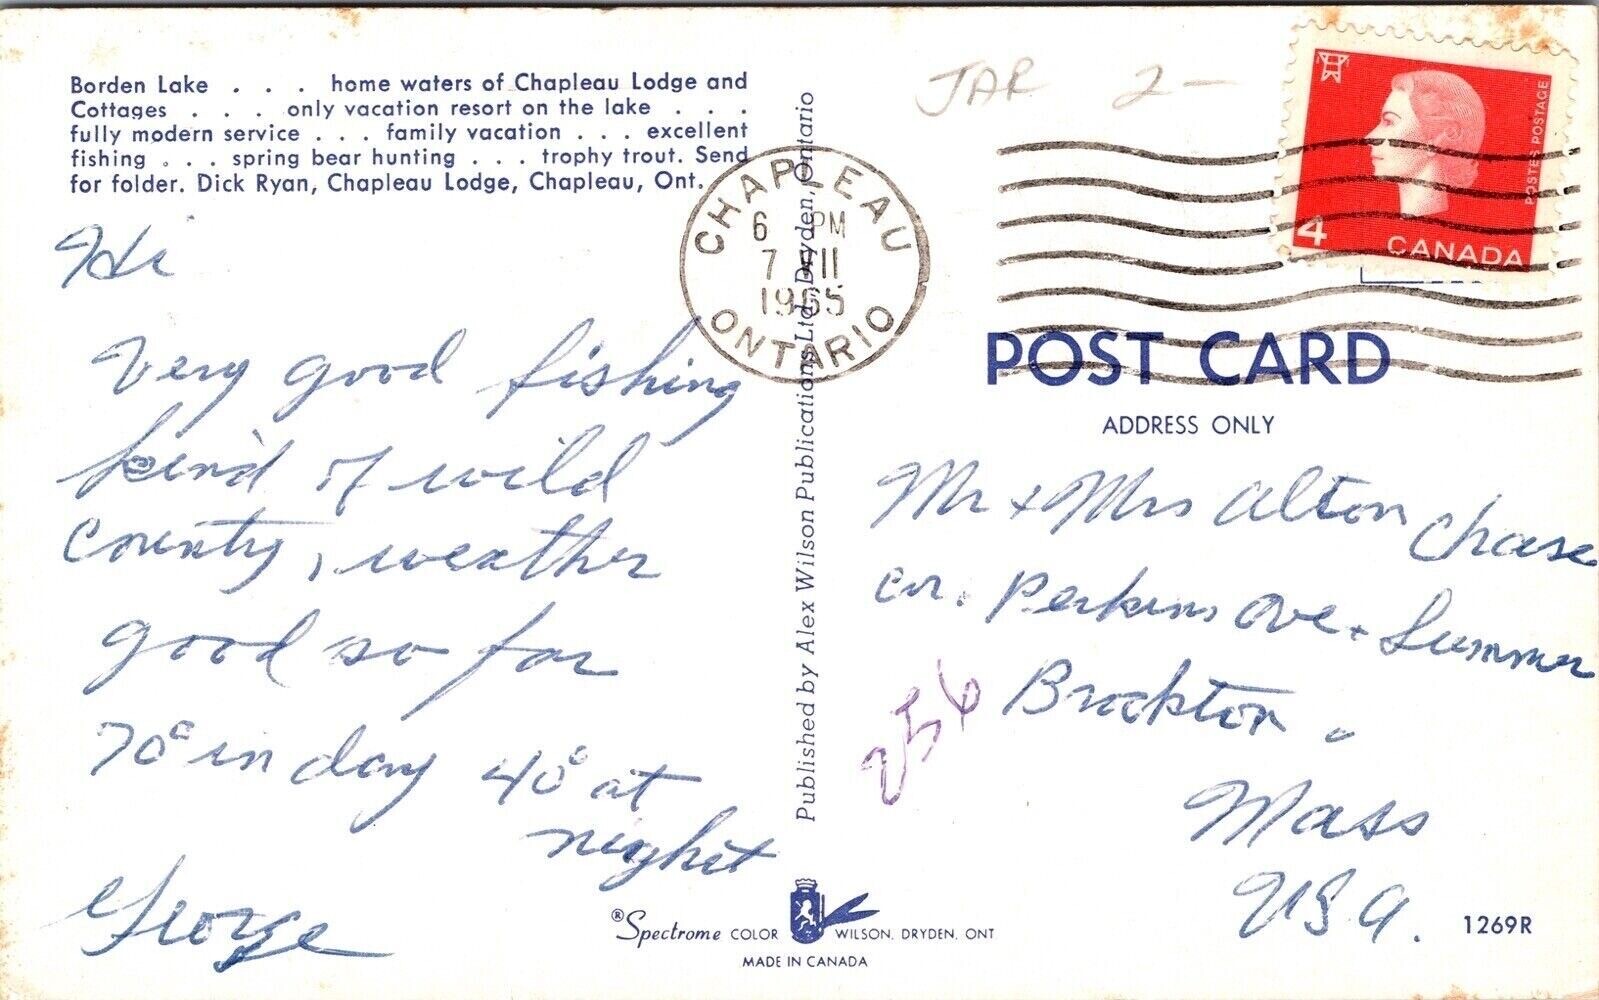 Borden Lake . . . home waters of Chapleau Lodge and
Cottages . . . only vacation resort on the lake . . .
fully modern service . . . family vacation . . . excellent
fishing . . . spring bear hunting . . . trophy trout. Send
for folder. Dick Ryan, Chapleau Lodge, Chapleau, Ont.
Hi
Very good fishing
kind of wild
County, weather
good so far
70° in day 40° at
night
George
Published by Alex Wilson Publications Ltd., Dryden, Ontario
CHAPLEAU
6 PM
7 VII
1965
ONTARIO
JAR 2-
POSTES POSTAGE
4
CANADA
POST CARD
ADDRESS ONLY
Mr + Mrs Alton Chase
cor. Perkins Ave + Summer
256
Brockton.
Mass
USA.
® Spectrome COLOR WILSON, DRYDEN, ONT
MADE IN CANADA
1269R